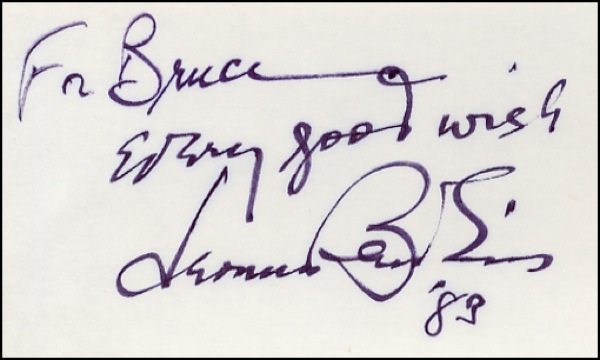 For Bruce
every good wish
Leonard Baskin
'83